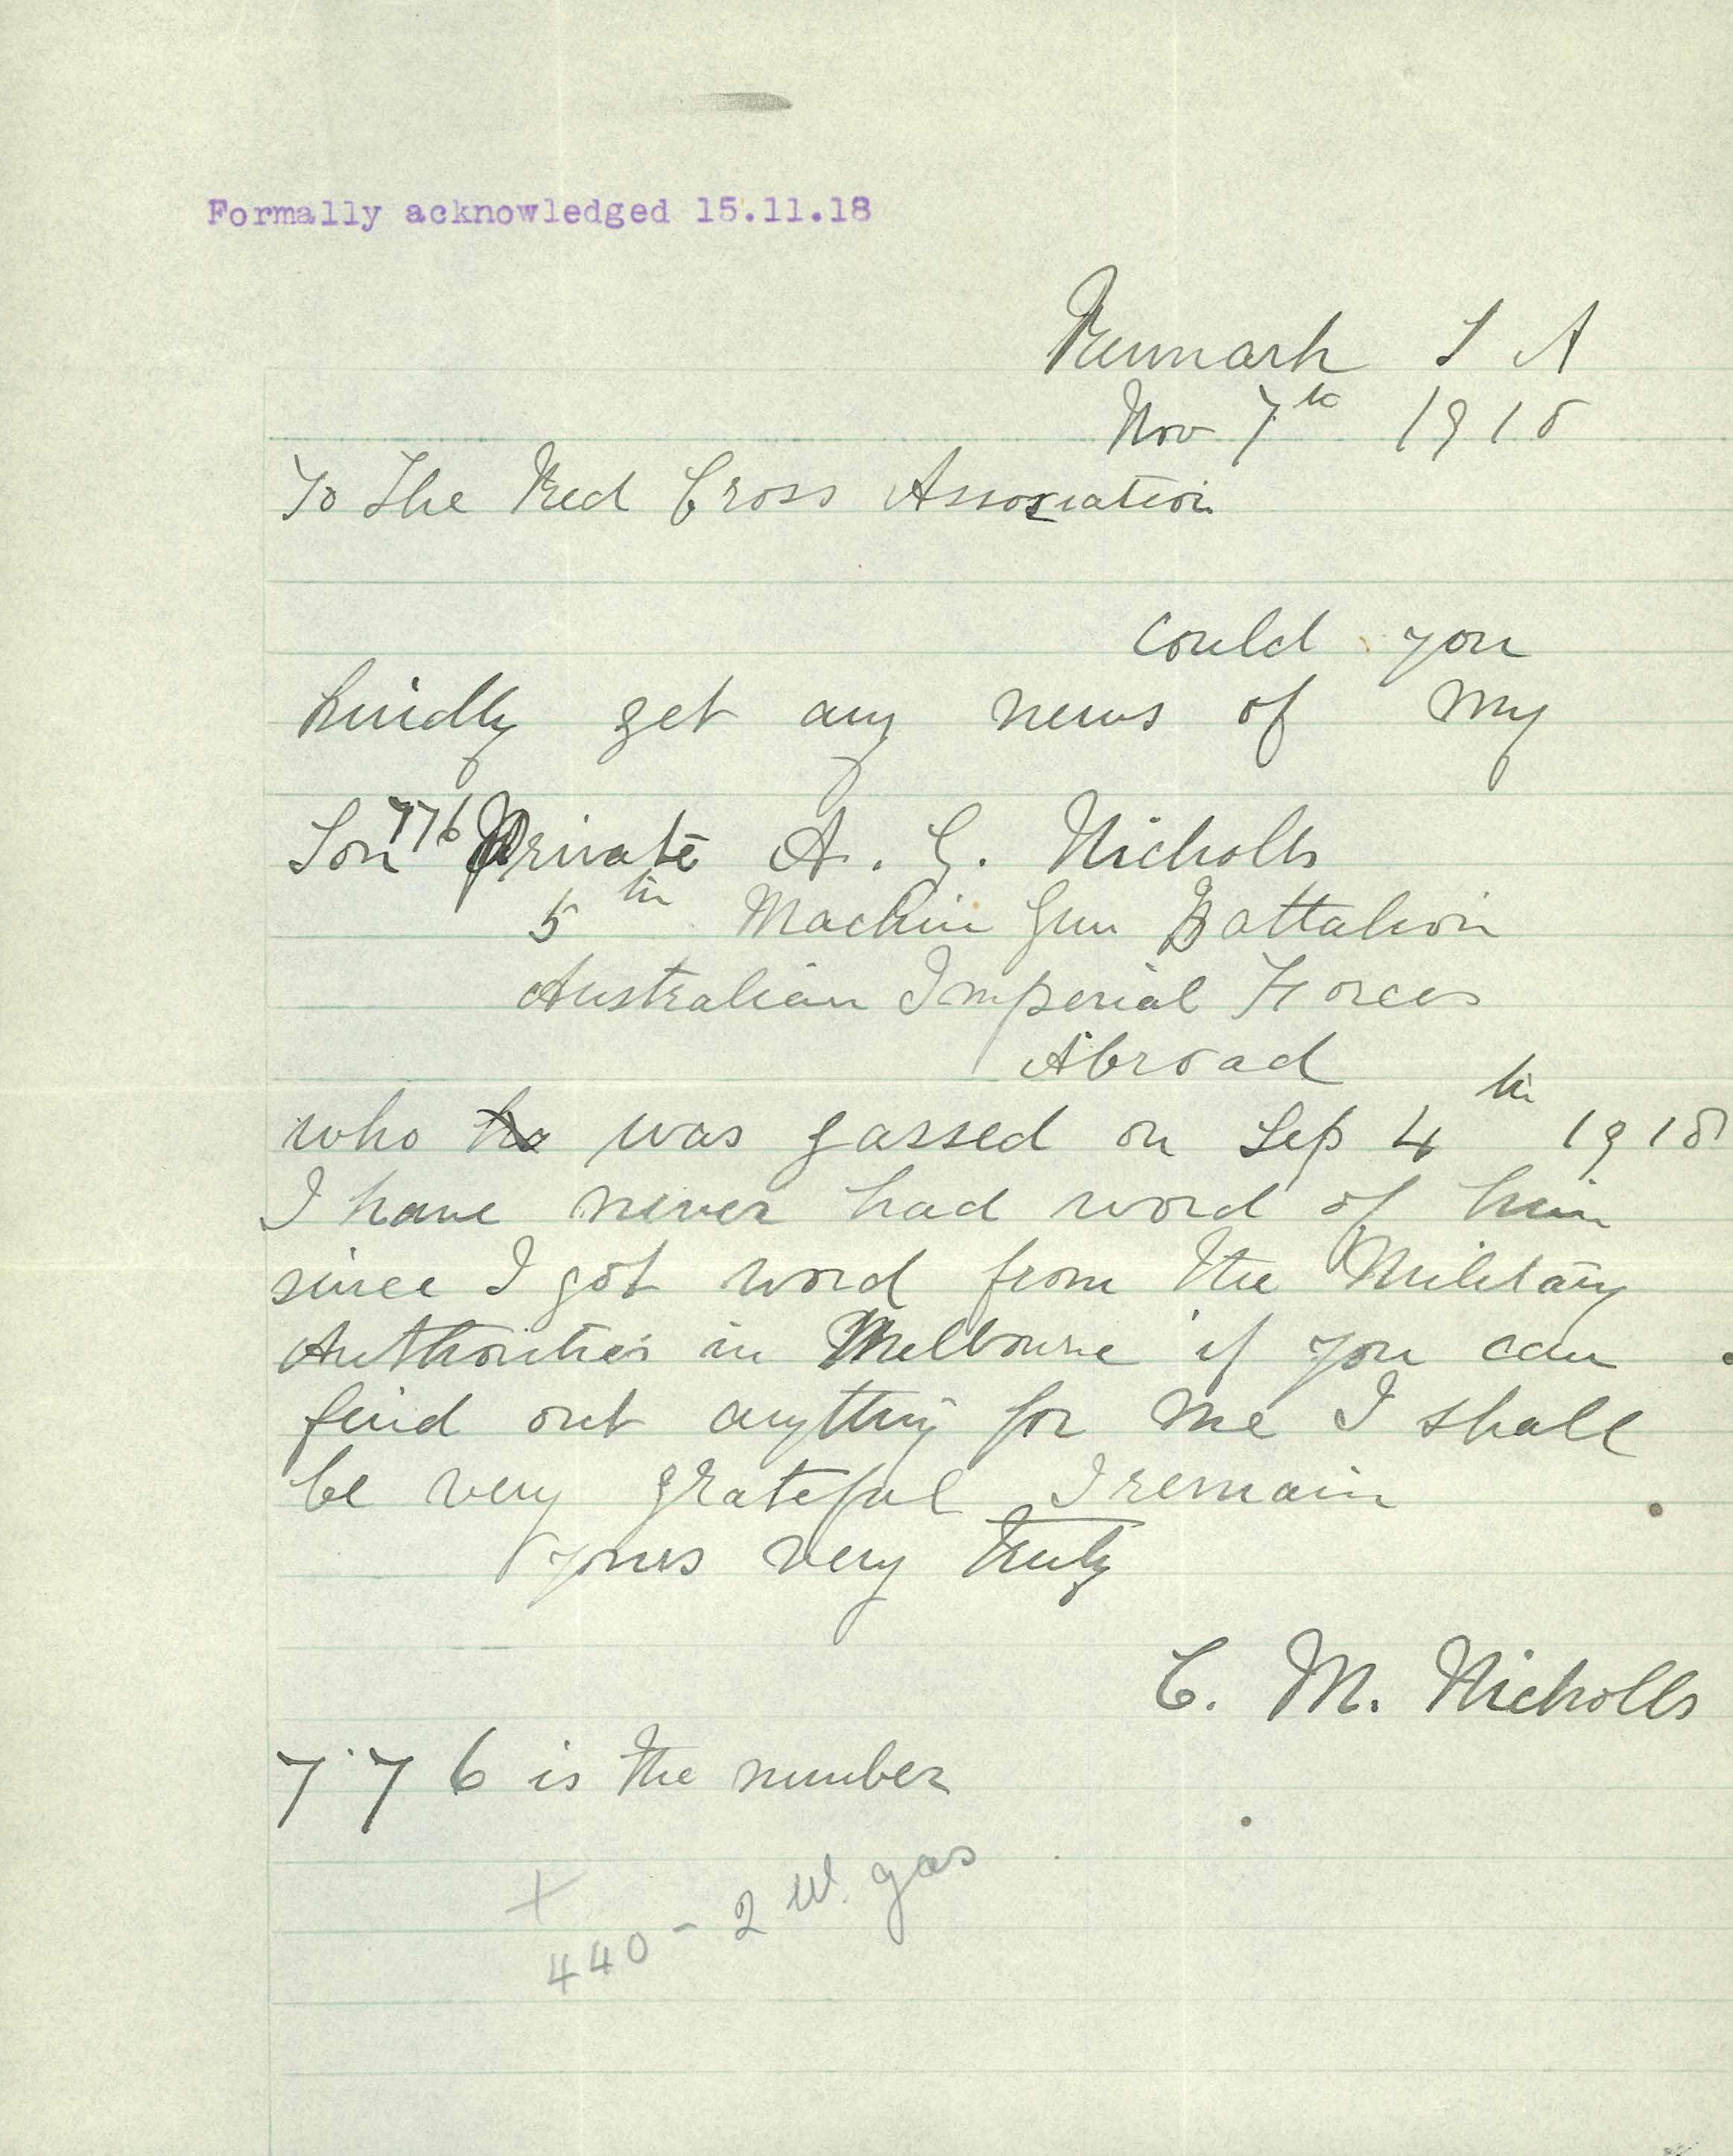 Formally acknowledged 15.11.18
Renmark S A
Nov 7th 1918
To The Red Cross Association
could you
kindly get any news of my
Son 776 Private A. G. Nicholls
5th Machin Gun Battalion
Australian Imperial Forces
Abroad
who ha was gassed on Sep 4th 1918
I have never had word of him
since I got word from the Military
Authorities in Melbourne if you can
find out anything for me I shall
be very grateful I remain
yours very truly
C. M. Nicholls
776 is the number
440 - 2 W. gas